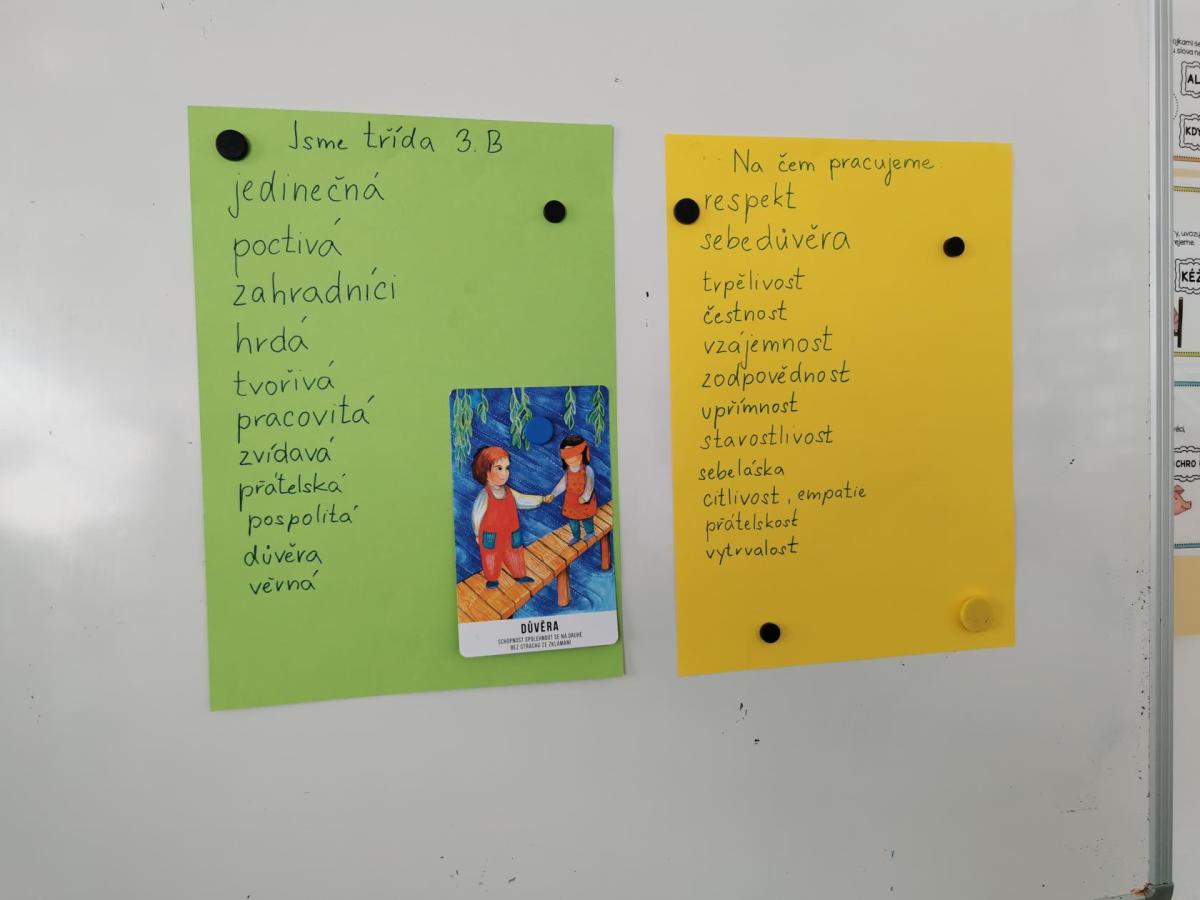 Jsme třída 3. B
jedinečná
poctivá
zahradníci
hrdá
tvořivá
pracovitá
zvídavá
přátelská
pospolitá
důvěra
věrná
DŮVĚRA
SCHOPNOST SPOLEHNOUT SE NA DRUHÉ
BEZ STRACHU ZE ZKLAMÁNÍ
Na čem pracujeme:
respekt
sebedůvěra
trpělivost
čestnost
vzájemnost
zodpovědnost
upřímnost
starostlivost
sebeláska
citlivost, empatie
přátelskost
vytrvalost
AL
KDY
KÉŽ
CHRO